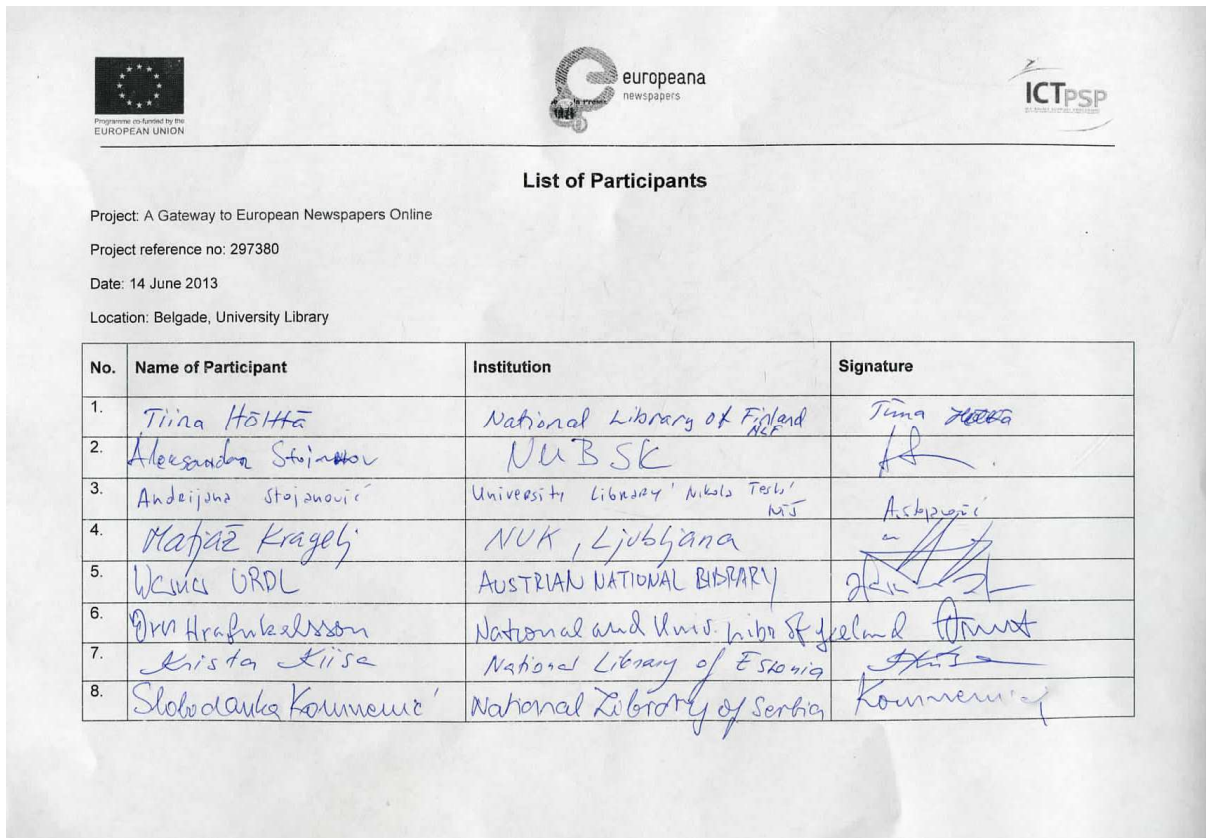 Programme co-funded by the
EUROPEAN UNION
europeana
newspapers
ICTPSP
List of Participants
Project: A Gateway to European Newspapers Online
Project reference no: 297380
Date: 14 June 2013
Location: Belgade, University Library
No. Name of Participant Institution Signature
1. Tiina Hölttä National Library of Finland Tiina Hölttä
NLF
2. Aleksandar NUBSK
3. Andrijana Stojanović University Library 'Nikola Tesla'
4. Matjaž Kragelj NUK, Ljubljana
5. URDL AUSTRIAN NATIONAL LIBRARY
6. Örn Hrafnkelsson National and Univ. Libr of Iceland
7. Krista Kiisa National Library of Estonia
8. Slobodanka Komnenić National Library of Serbia Komnenić